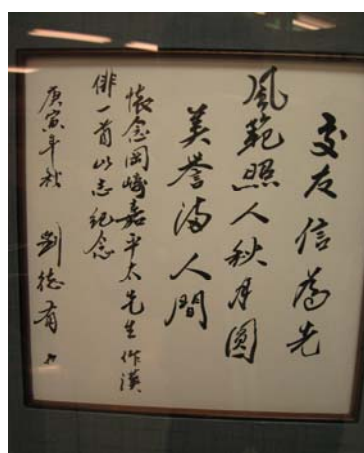 交友信為先
風範照人秋月圓
美誉满人間
懷念岡崎嘉平太先生作漢
俳一首以志纪念
庚寅年秋 劉德有